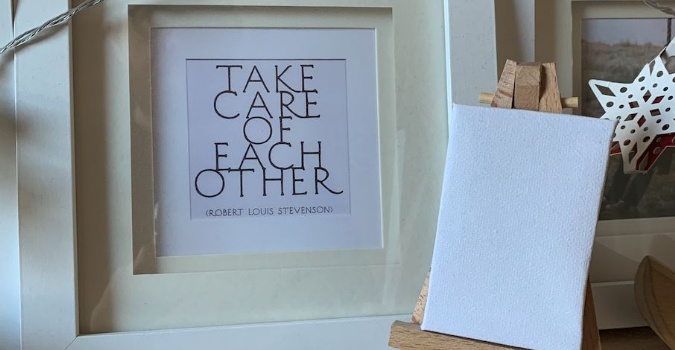 TAKE
CARE
OF
EACH
OTHER
(ROBERT LOUIS STEVENSON)